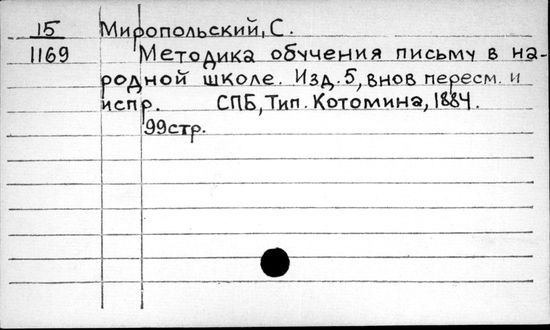 15 Миропольский, С.
1169 Методика обучения письму в на-
родной школе. Изд. 5, внов пересм. и
испр. СПБ, Тип. Котомина, 1884.
99стр.